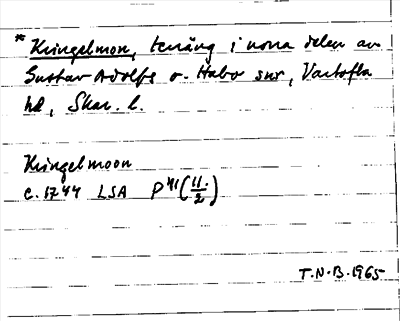 * Kringelmon, terräng i norra delen av
Gustav Adolfs o. Habo snr, Vartofta
hd, Skar. l.
Kringelmoon
c. 1744 LSA P41 (11/2)
T.N.B. 1965